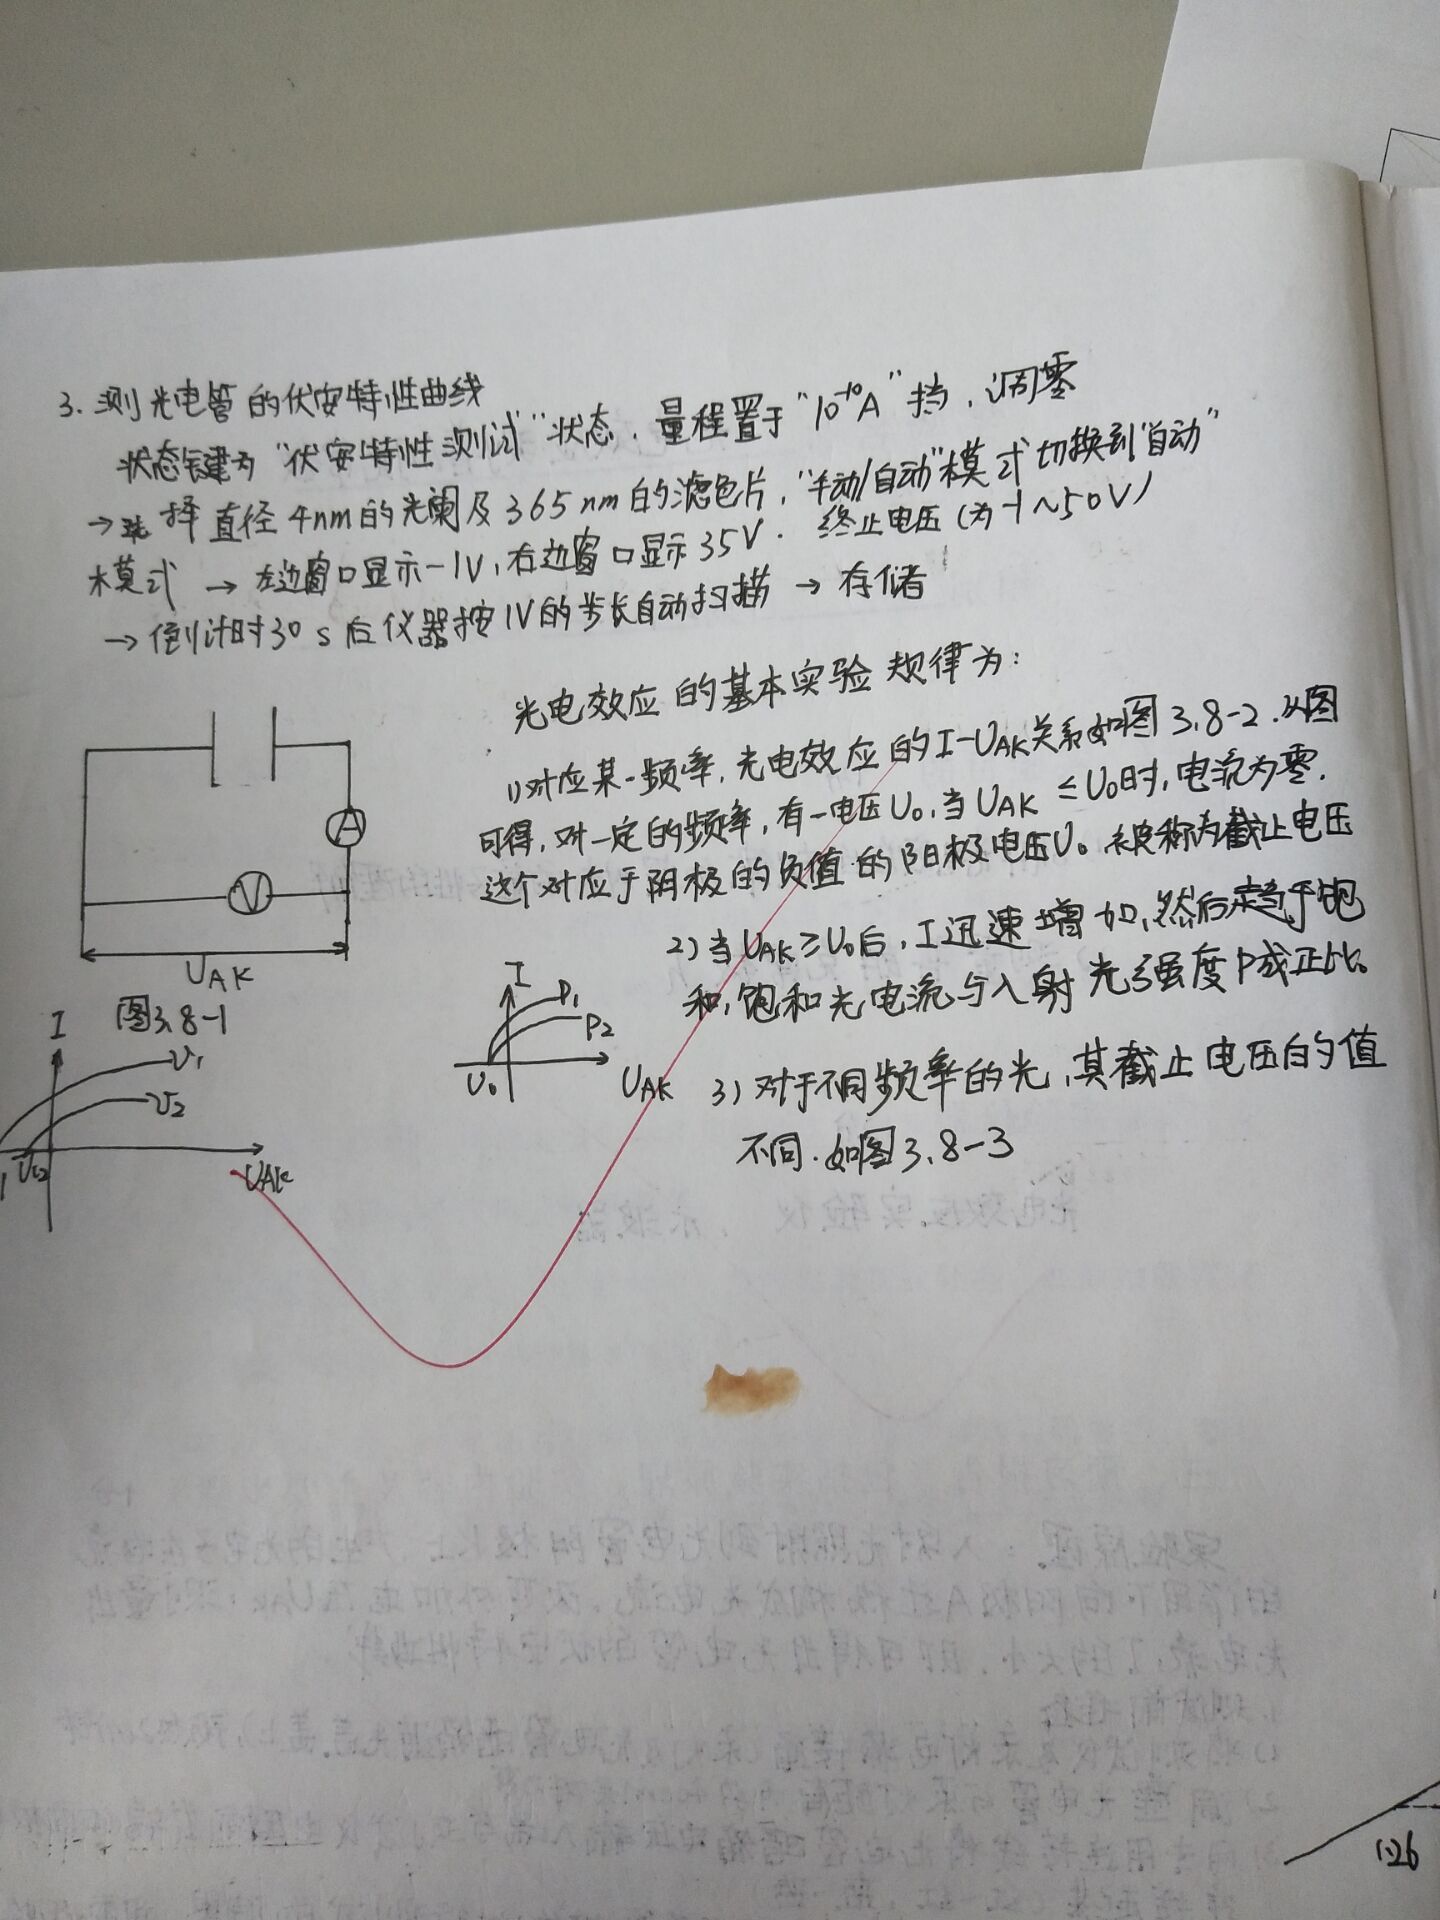 3. 测光电管的伏安特性曲线
状态键为"伏安特性测试"状态，量程置于"10⁻¹⁰A"挡，调零
→选择直径4nm的光阑及365nm的滤色片，"手动/自动"模式切换到"自动"
模式 → 左边窗口显示-1V，右边窗口显示35V. 终止电压(为-1~50V)
→ 倒计时30s后仪器按1V的步长自动扫描 → 存储
光电效应的基本实验规律为：
1)对应某一频率，光电效应的I-UAK关系如图3.8-2.从图
可得，对一定的频率，有一电压U₀，当UAK ≤U₀时，电流为零.
这个对应于阴极的负值的阳极电压U₀被称为截止电压
2)当UAK≥U₀后，I迅速增加，然后趋于饱
和，饱和光电流与入射光强度P成正比.
3)对于不同频率的光，其截止电压的值
不同.如图3.8-3
A
V
UAK
图3.8-1
I
P₁
P₂
U₀
UAK
I
υ₁
υ₂
U₀₂
UAK
1.26